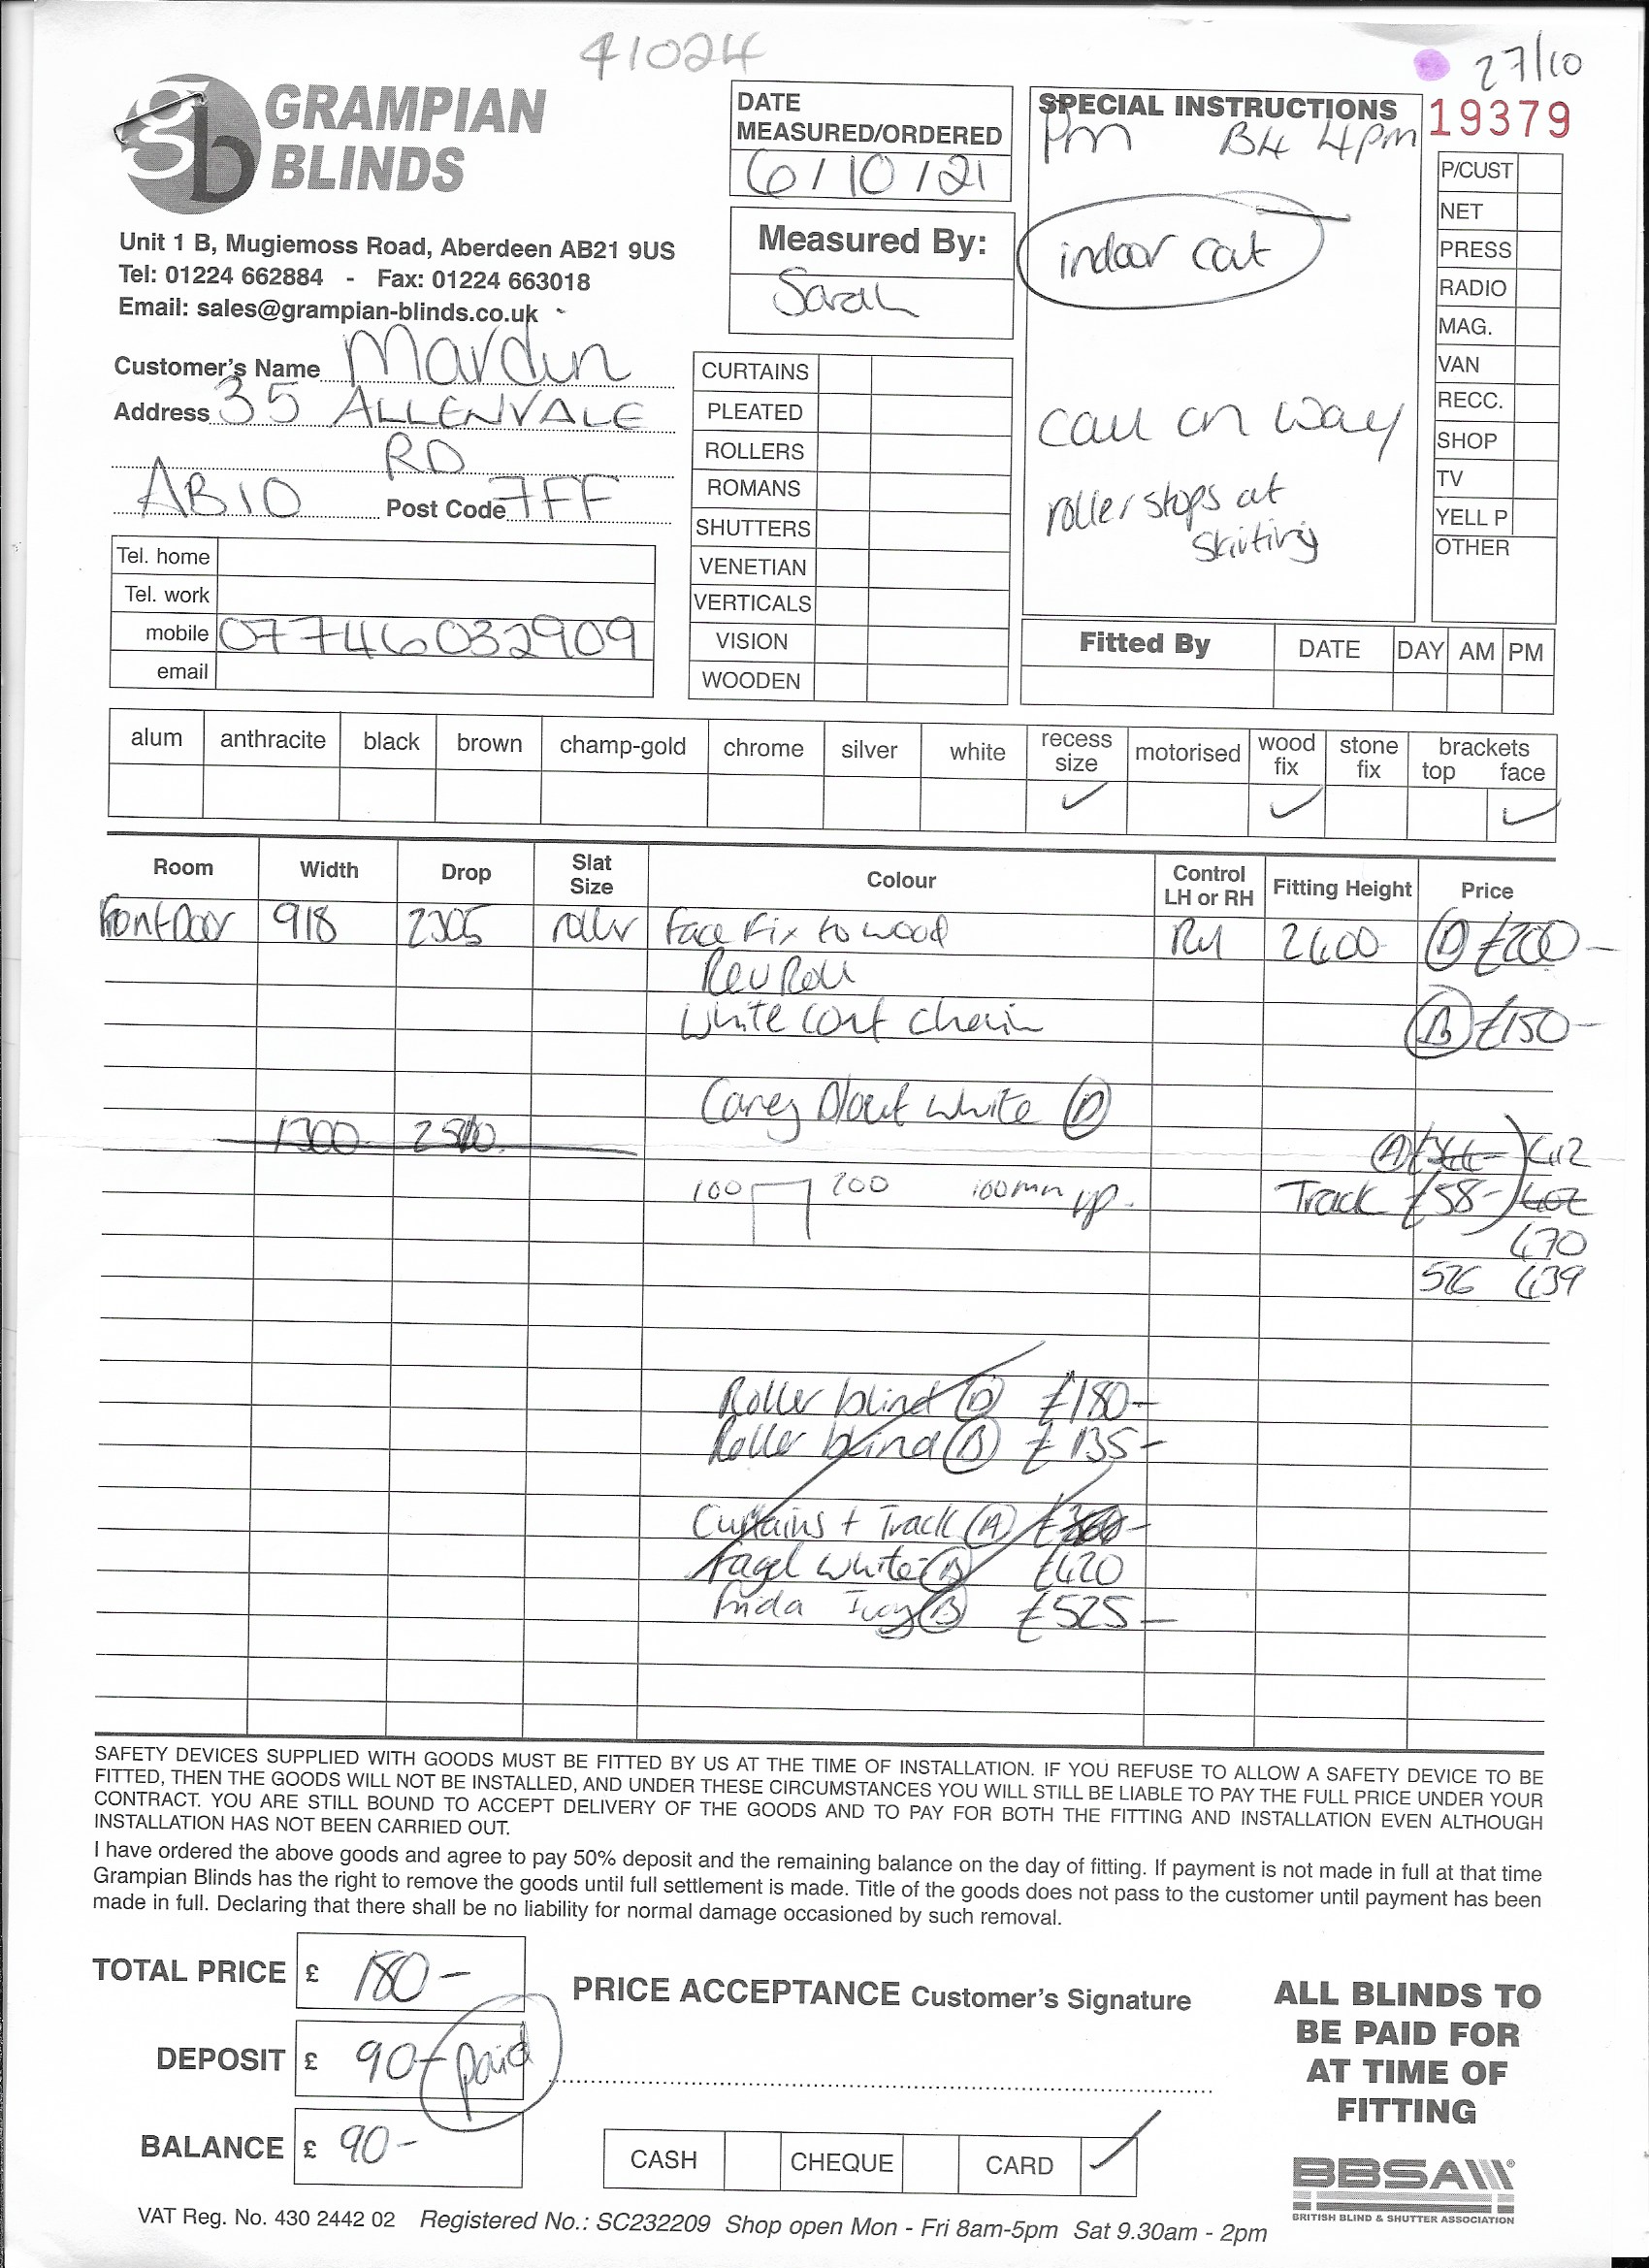 41024
27/10
GRAMPIAN
BLINDS
Unit 1 B, Mugiemoss Road, Aberdeen AB21 9US
Tel: 01224 662884 - Fax: 01224 663018
Email: sales@grampian-blinds.co.uk
DATE
MEASURED/ORDERED
6/10/21
Measured By:
Sarah
SPECIAL INSTRUCTIONS
19379
Pm B4 4pm
indoor cat
call on way
roller stops at
skirting
P/CUST
NET
PRESS
RADIO
MAG.
VAN
RECC.
SHOP
TV
YELL P
OTHER
Customer's Name
Address 35 ALLENVALE
RD
AB10 Post Code 7FF
Tel. home
Tel. work
mobile 07746032909
email
CURTAINS
PLEATED
ROLLERS
ROMANS
SHUTTERS
VENETIAN
VERTICALS
VISION
WOODEN
Fitted By DATE DAY AM PM
alum anthracite black brown champ-gold chrome silver white recess size motorised wood fix stone fix brackets top face
Room Width Drop Slat Size Colour Control LH or RH Fitting Height Price
Front Door 918 2305 roller Face Fix to wood RH 2400 D £200-
Rev Roll
White cont chain B £150-
Carey B/out white D
1300
A 412
100 200 100mm up. Track £58- 402
470
526 439
Roller blind D £180-
Roller blind B £135-
Curtains + Track A
white £420
£525-
SAFETY DEVICES SUPPLIED WITH GOODS MUST BE FITTED BY US AT THE TIME OF INSTALLATION. IF YOU REFUSE TO ALLOW A SAFETY DEVICE TO BE
FITTED, THEN THE GOODS WILL NOT BE INSTALLED, AND UNDER THESE CIRCUMSTANCES YOU WILL STILL BE LIABLE TO PAY THE FULL PRICE UNDER YOUR
CONTRACT. YOU ARE STILL BOUND TO ACCEPT DELIVERY OF THE GOODS AND TO PAY FOR BOTH THE FITTING AND INSTALLATION EVEN ALTHOUGH
INSTALLATION HAS NOT BEEN CARRIED OUT.
I have ordered the above goods and agree to pay 50% deposit and the remaining balance on the day of fitting. If payment is not made in full at that time
Grampian Blinds has the right to remove the goods until full settlement is made. Title of the goods does not pass to the customer until payment has been
made in full. Declaring that there shall be no liability for normal damage occasioned by such removal.
TOTAL PRICE £ 180-
DEPOSIT £ 90- paid
BALANCE £ 90-
PRICE ACCEPTANCE Customer's Signature
CASH CHEQUE CARD
ALL BLINDS TO
BE PAID FOR
AT TIME OF
FITTING
BBSA
BRITISH BLIND & SHUTTER ASSOCIATION
VAT Reg. No. 430 2442 02 Registered No.: SC232209 Shop open Mon - Fri 8am-5pm Sat 9.30am - 2pm